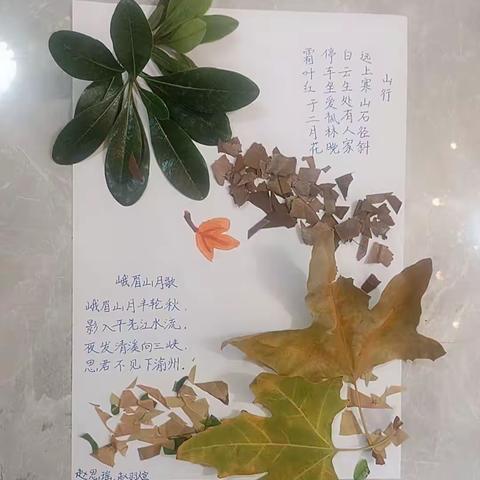 山行
远上寒山石径斜
白云生处有人家
停车坐爱枫林晚
霜叶红于二月花
峨眉山月歌
峨眉山月半轮秋，
影入平羌江水流。
夜发清溪向三峡，
思君不见下渝州。
赵思瑶 赵羽